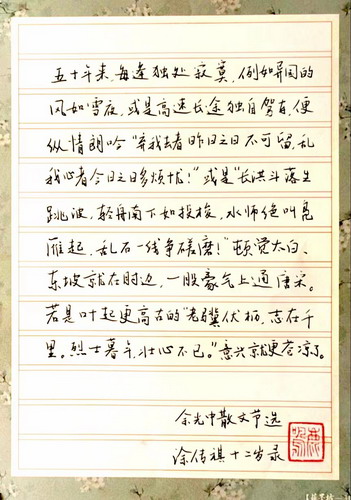 五十年来,每逢独处寂寞,例如异国的
风如雪夜,或是高速长途独自驾车,便
纵情朗吟"弃我去者昨日之日不可留,乱
我心者今日之日多烦忧!"或是"长洪斗落生
跳波,轻舟南下如投梭,水师绝叫凫
雁起,乱石一线争磋磨!"顿觉太白、
东坡就在肘边,一股豪气上通唐宋。
若是叶起更高古的"老骥伏枥,志在千
里。烈士暮年,壮心不已。"意兴就更苍凉了。
余光中散文节选
涂传祺十二岁录